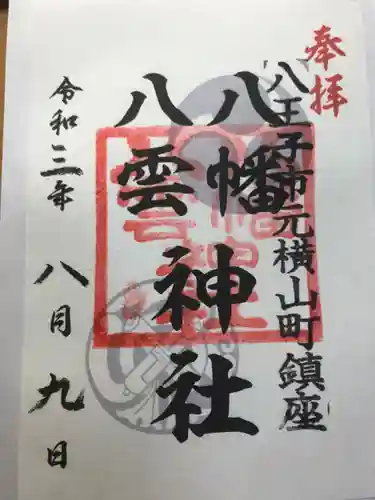 奉拝
八王子市元横山町鎮座
八幡
八雲
神社
令和三年八月九日